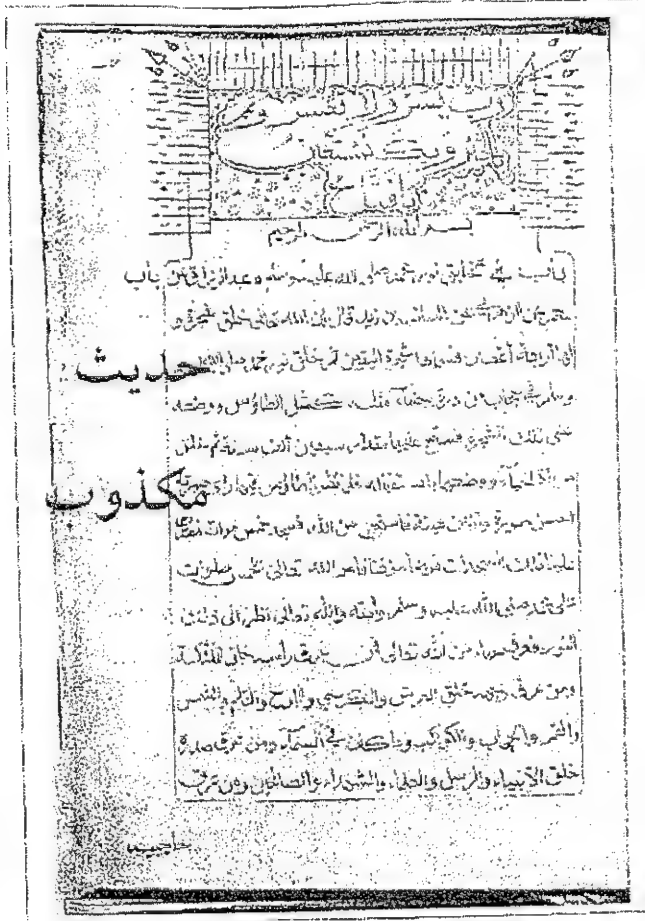 رب يسر ولا تعسر
وبك نستعين
بسم الله الرحمن الرحيم
باب في تخليق نور محمد صلى الله عليه وسلم عبد الرزاق عن
معمر عن الزهري عن السائب بن زيد قال ان الله تعالى خلق شجرة و
لها اربعة أغصان فسماها شجرة اليقين ثم خلق نور محمد صلى الله عليه
وسلم في حجاب من درة بيضاء مثله كمثل الطاؤس ووضعه
على تلك الشجرة فسبح عليها مقدار سبعين ألف سنة ثم خلق
مرآة الحياء ووضعها باستقباله فلما نظر الطاؤس فيها رأى صورته
احسن صورة وازين هيئة فاستحيى من الله فسجد خمس مرات فصارت
علينا تلك السجدات فرضا مؤقتا فأمر الله تعالى بخمس صلوات
على محمد صلى الله عليه وسلم وأمته والله تعالى نظر الى ذلك
النور فعرق حياء من الله تعالى فمن عرق رأسه خلق الملائكة
ومن عرق وجهه خلق العرش والكرسي واللوح والقلم والشمس
والقمر والحجاب والكواكب وما كان في السماء ومن عرق صدره
خلق الانبياء والرسل والعلماء والشهداء والصالحين ومن عرق
حاجبيه
حديث
مكذوب